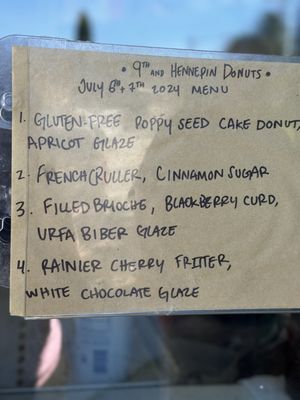 • 9TH AND HENNEPIN DONUTS •
JULY 6th + 7th 2024 MENU
1. GLUTEN-FREE POPPY SEED CAKE DONUT,
APRICOT GLAZE
2. FRENCH CRULLER, CINNAMON SUGAR
3. FILLED BRIOCHE, BLACKBERRY CURD,
URFA BIBER GLAZE
4. RAINIER CHERRY FRITTER,
WHITE CHOCOLATE GLAZE